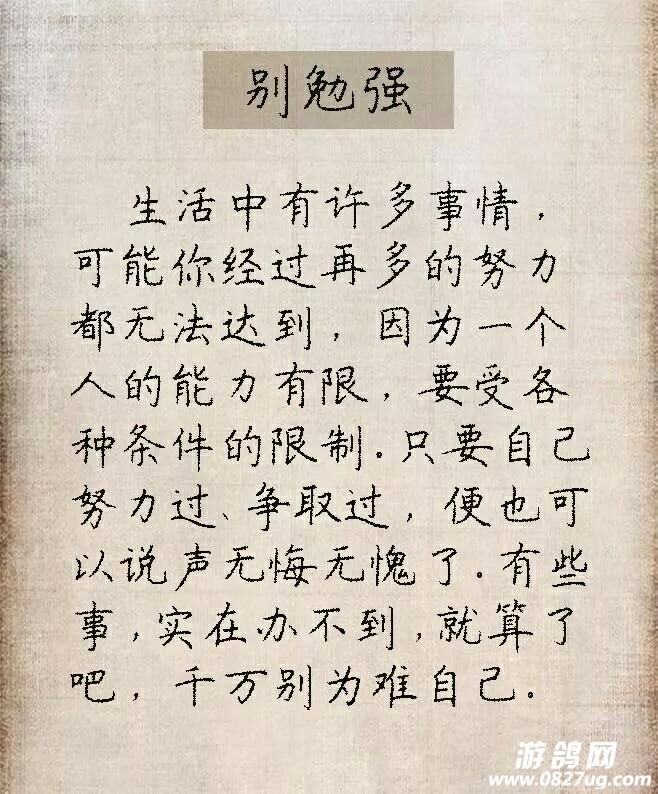 别勉强
生活中有许多事情，
可能你经过再多的努力
都无法达到，因为一个
人的能力有限，要受各
种条件的限制。只要自己
努力过、争取过，便也可
以说声无悔无愧了。有些
事，实在办不到，就算了
吧，千万别为难自己。
游鸽网
www.0827ug.com